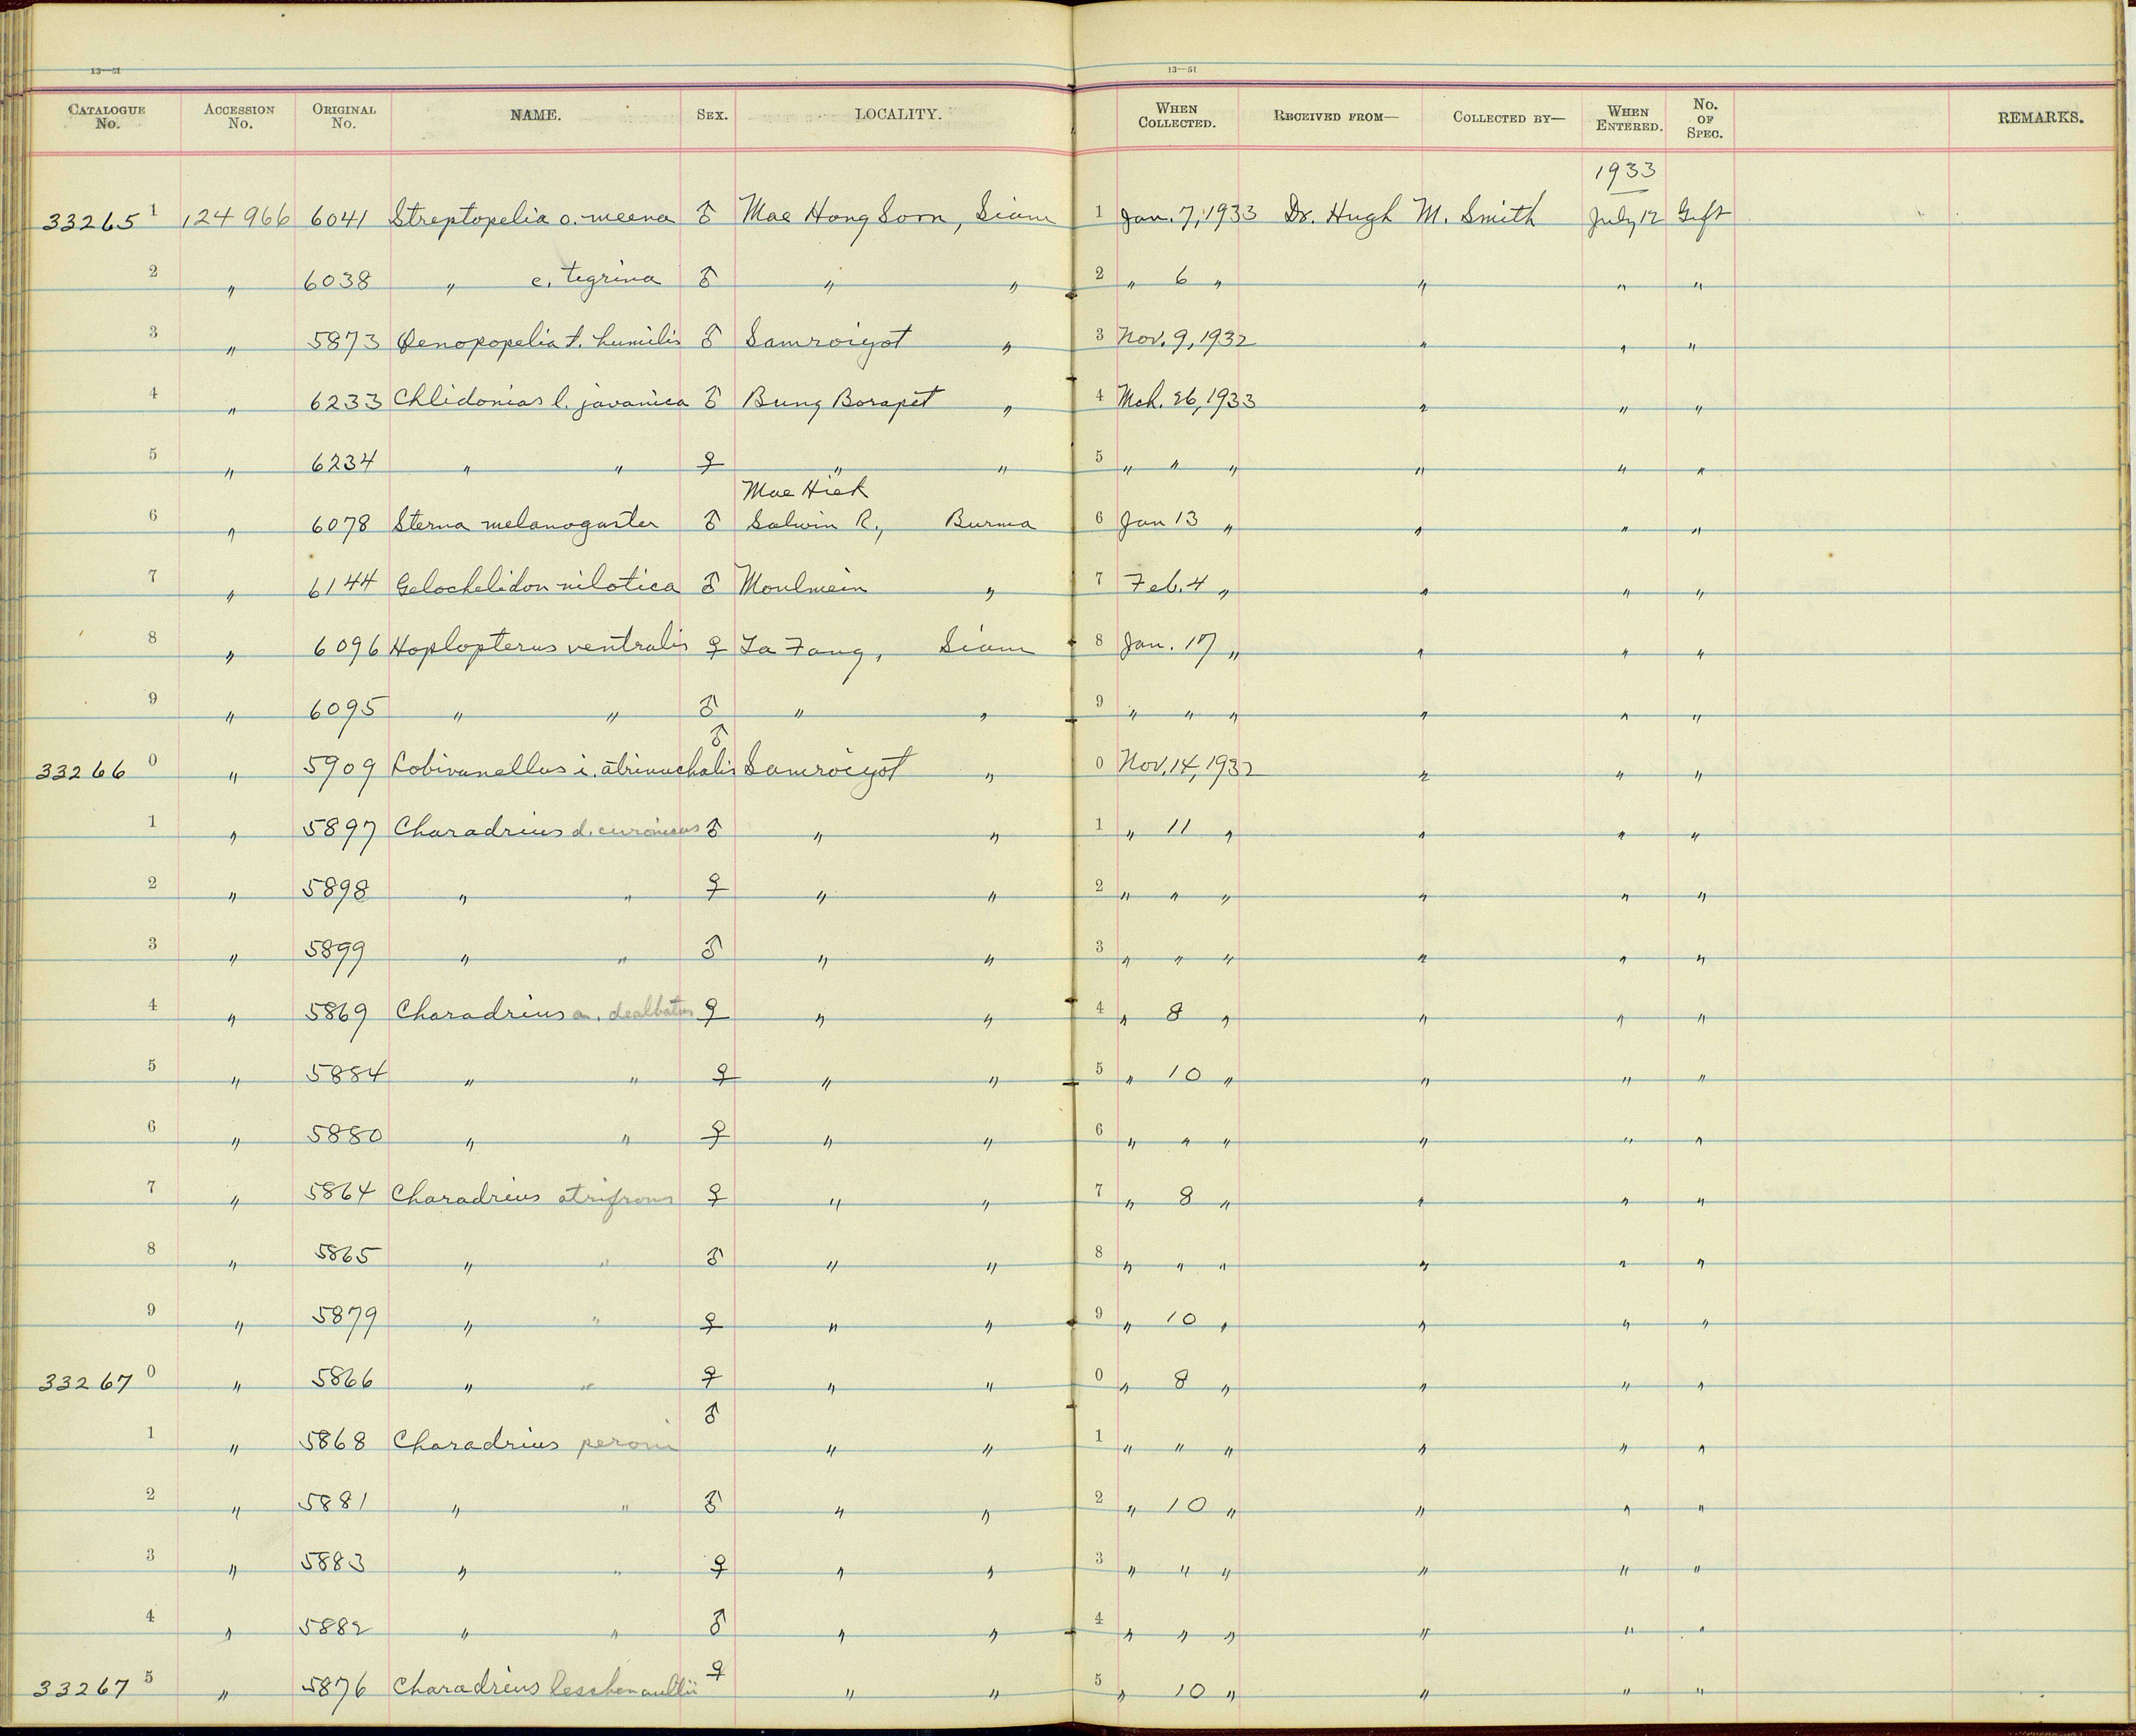 13—51 13—51
CATALOGUE No. ACCESSION No. ORIGINAL No. NAME. SEX. LOCALITY. WHEN COLLECTED. RECEIVED FROM— COLLECTED BY— WHEN ENTERED. No. OF SPEC. REMARKS.
1933
33265 1 124966 6041 Streptopelia o. meena ♂ Mae Hong Sorn, Siam 1 Jan. 7, 1933 Dr. Hugh M. Smith July 12 Gift
2 " 6038 " c. tigrina ♂ " " 2 " 6 " " " "
3 " 5873 Oenopopelia t. humilis ♂ Samroiyot " 3 Nov. 9, 1932 " " "
4 " 6233 Chlidonias l. javanica ♂ Bung Borapet " 4 Mch. 26, 1933 " " "
5 " 6234 " " ♀ " " 5 " " " " " "
Mae Hiek
6 " 6078 Sterna melanogaster ♂ Salwin R., Burma 6 Jan 13 " " " "
7 " 6144 Gelochelidon nilotica ♂ Moulmein " 7 Feb. 4 " " " "
8 " 6096 Hoplopterus ventralis ♀ Ta Fang, Siam 8 Jan. 17 " " " "
9 " 6095 " " ♂ " " 9 " " " " " "
33266 0 " 5909 Lobivanellus i. atrinuchalis ♂ Samroiyot " 0 Nov. 14, 1932 " " "
1 " 5897 Charadrius d. curonicus ♂ " " 1 " 11 " " " "
2 " 5898 " " ♀ " " 2 " " " " " "
3 " 5899 " " ♂ " " 3 " " " " " "
4 " 5869 Charadrius a. dealbatus ♀ " " 4 " 8 " " " "
5 " 5884 " " ♀ " " 5 " 10 " " " "
6 " 5880 " " ♀ " " 6 " " " " " "
7 " 5864 Charadrius atrifrons ♀ " " 7 " 8 " " " "
8 " 5865 " " ♂ " " 8 " " " " " "
9 " 5879 " " ♀ " " 9 " 10 " " " "
33267 0 " 5866 " " ♀ " " 0 " 8 " " " "
1 " 5868 Charadrius peroni ♂ " " 1 " " " " " "
2 " 5881 " " ♂ " " 2 " 10 " " " "
3 " 5883 " " ♀ " " 3 " " " " " "
4 " 5882 " " ♂ " " 4 " " " " " "
33267 5 " 5876 Charadrius leschenaultii ♀ " " 5 " 10 " " " "